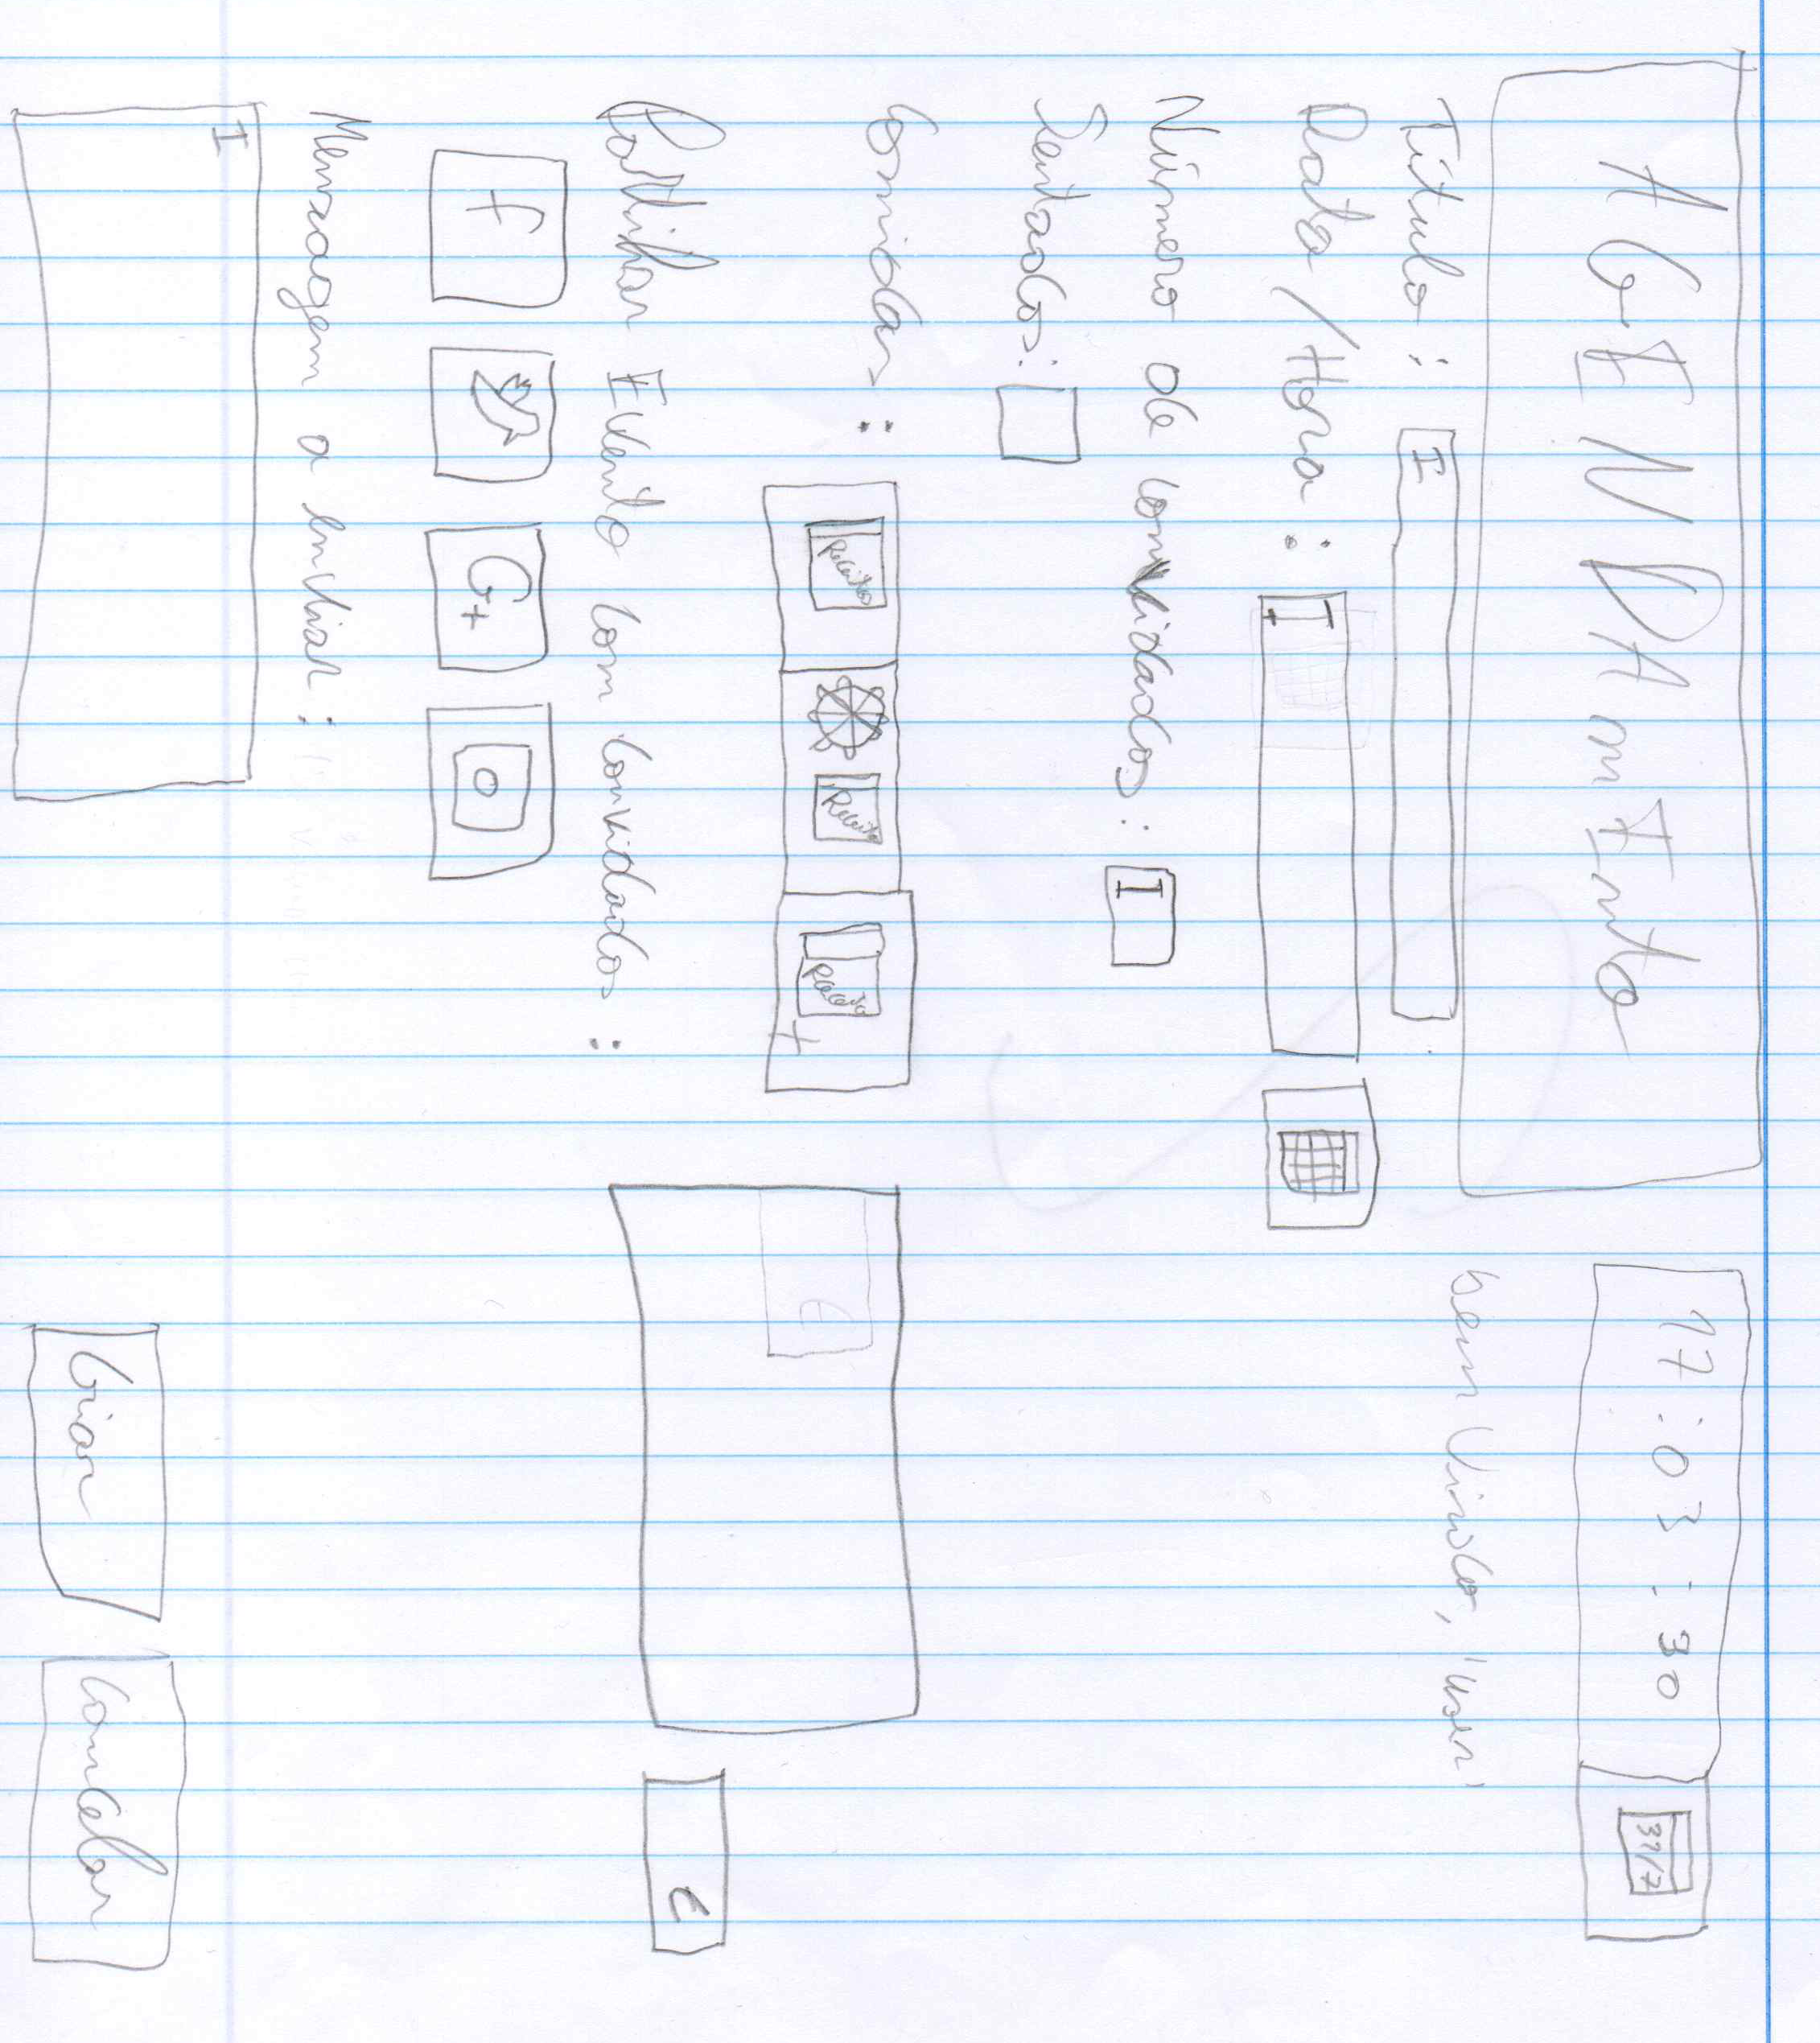 AGENDAmEnto
17:03:30
31/7
bem Vindo, "user"
Título:
Data/Hora:
Número de convidados:
Sentados:
Comidas:
Receitas
Receita
Receita
+
Partilhar Evento com convidados:
f
G+
€
Mensagem a enviar:
Criar
Cancelar